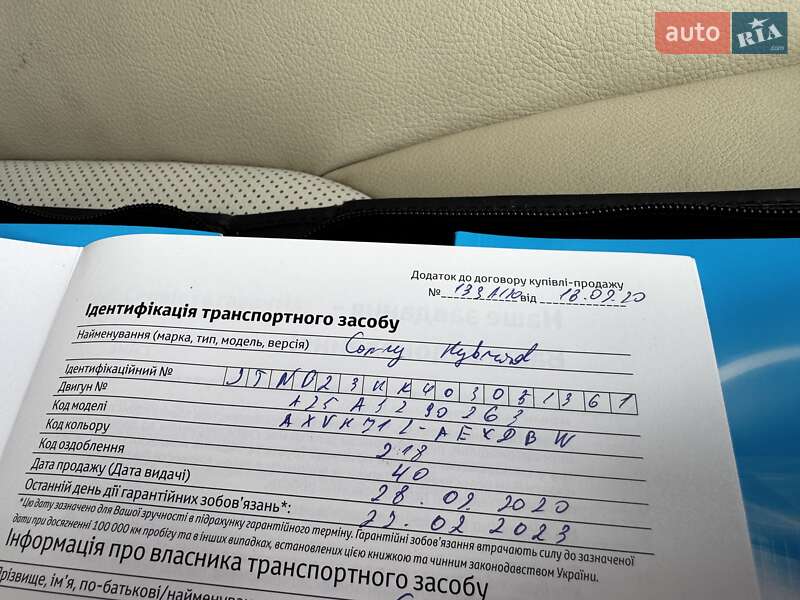 auto RIA.com
Додаток до договору купівлі-продажу
№ від 18.02.20
Ідентифікація транспортного засобу
Найменування (марка, тип, модель, версія) Camry Hybrid
Ідентифікаційний №
Двигун №
Код моделі AXVH71L-AEXDBW
Код кольору 218
Код оздоблення 40
Дата продажу (Дата видачі) 28.02.2020
Останній день дії гарантійних зобов'язань*: 27.02 2023
*Цю дату зазначено для Вашої зручності в підрахунку гарантійного терміну. Гарантійні зобов'язання втрачають силу до зазначеної
дати при досягненні 100 000 км пробігу та в інших випадках, встановлених цією книжкою та чинним законодавством України.
Інформація про власника транспортного засобу
Прізвище, ім'я, по-батькові/найменування